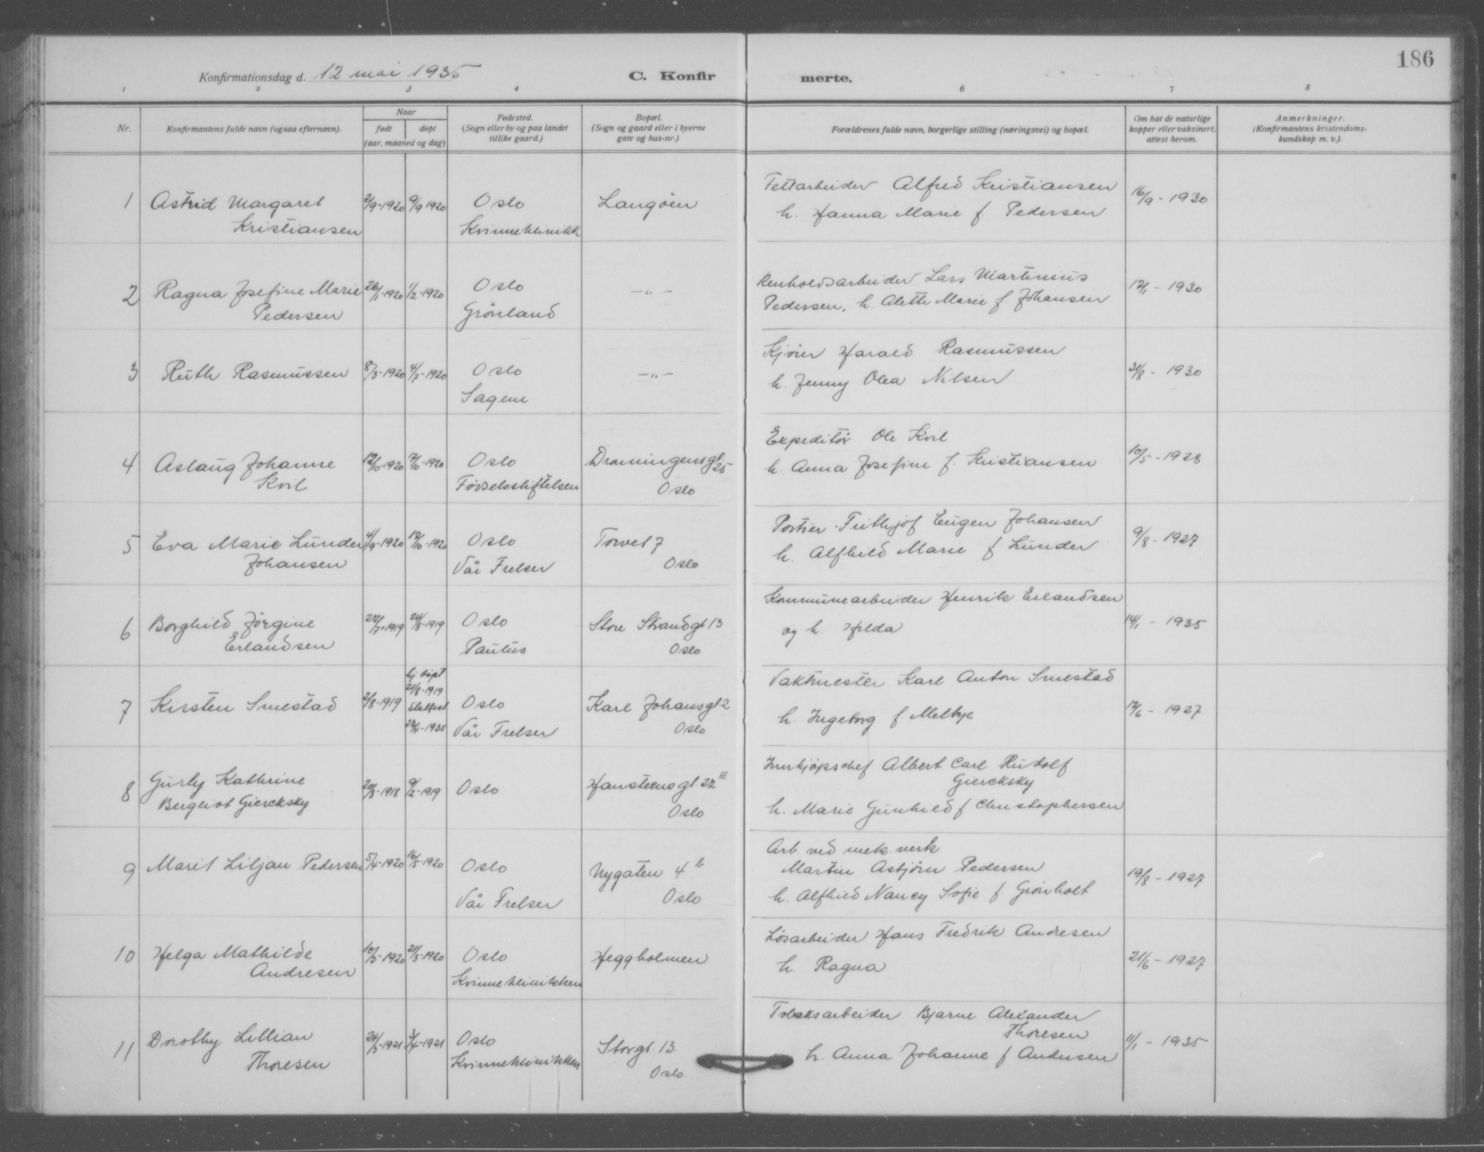 186
Konfirmationsdag d. 12 mai 1935
C. Konfirmerte.
1 2 3 4 6 7 8
Nr.
Konfirmantens fulde navn (ogsaa efternavn).
Naar
født døpt
(aar, maaned og dag)
Fødested.
(Sogn eller by og paa landet
tillike gaard.)
Bopæl.
(Sogn og gaard eller i byerne
gate og hus-nr.)
Forældrenes fulde navn, borgerlige stilling (næringsvei) og bopæl.
Om hat de naturlige
kopper eller vaksinert,
attest herom.
Anmerkninger.
(Konfirmantens kristendoms-
kundskap m. v.).
1 Astrid Margaret 2/9-1920 9/9 1920 Oslo Langøien
Kristiansen Kvinneklinikk
Alfred Kristiansen 16/9 - 1930
h. Hanna Marie f Pedersen
2 Ragna Josefine Marie 26/1-1920 1/2-1920 Oslo -"-
Pedersen Grønland
Renholdsarbeider Lars Martinius 12/1 - 1930
Pedersen, h Aleth Marie f Johansen
3 Ruth Rasmussen 8/3-1920 Oslo -"-
Sagene
Kjører Harald Rasmussen 1930
h. Jenny Olea Nilsen
4 Aslaug Johanne Oslo Dronningensgt
Kvil Fødselsstiftelsen 25 Oslo
Expeditør Ole Kvil 10/5 - 1928
h. Anna Josefine f. Kristiansen
5 Eva Marie Lunder 4/9-1920 12/10-1920 Oslo Torvet 7
Johansen Vår Frelser Oslo
Portier Frithjof Eugen Johansen 9/8 - 1927
h. Alfhild Marie f Lunder
6 Borghild Jørgine 1919 1919 Oslo Store Strandgt 13
Erlandsen Paulus Oslo
Kommunearbeider Henrik Erlandsen 14/1 - 1935
og h. Hilda
7 Kirsten Smestad 2/8-1919 hj. døpt 1919 1935 Oslo Karl Johansgt 2
Vår Frelser Oslo
Vaktmester Karl Anton Smestad 1927
h. Ingeborg f Melbye
8 Gurly Kathrine 1918 9/2-1919 Oslo Hansteensgt 22 III
Bergliot Giercksky Oslo
Innkjøpschef Albert Carl Rudolf
Giercksky
h. Marie Gunhild f Christophersen
9 Marit Liljan Pedersen 5/4-1920 16/5-1920 Oslo Nygaten 4 b
Vår Frelser Oslo
Arb ved mek verk
Martin Asbjørn Pedersen 19/8 - 1927
h. Alfhild Nancy Sofie f. Grønholt
10 Helga Mathilde 10/3-1920 21/3-1920 Oslo Heggholmen
Andresen Kvinneklinikken
Løsarbeider Hans Fredrik Andresen 21/6 - 1927
h. Ragna
11 Dorothy Lillian 1921 3/4-1921 Oslo Storgt 13
Thoresen Kvinneklinikken Oslo
Tobaksarbeider Bjarne Alexander
Thoresen 11/1 - 1935
h. Anna Johanne f Andersen